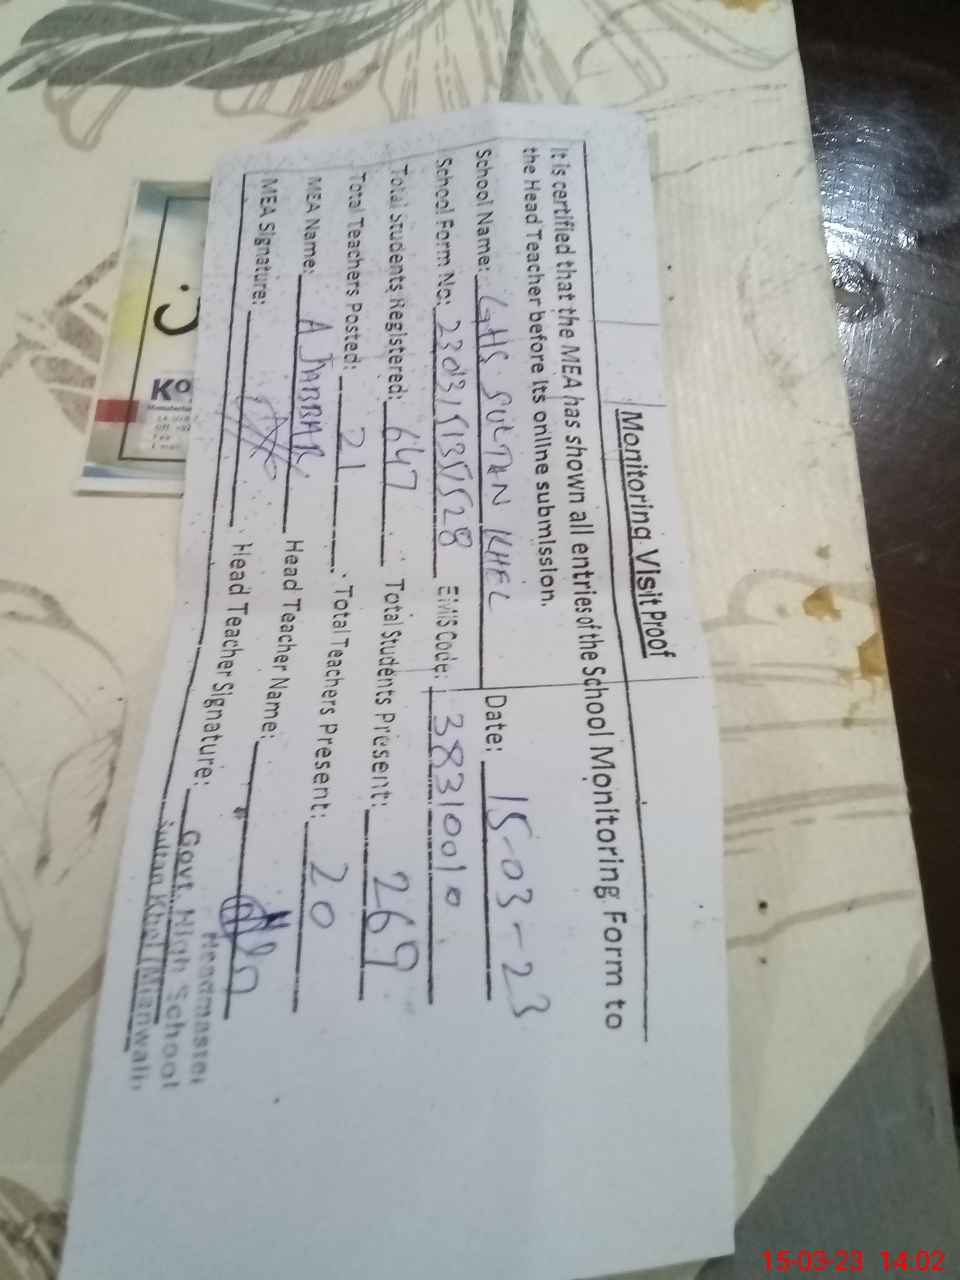 Monitoring Visit Proof
It is certified that the MEA has shown all entries of the School Monitoring Form to
the Head Teacher before its online submission.
School Name: GHS SULTAN KHEL Date: 15-03-23
School Form No: EMIS Code: 38310010
Total Students Registered: 647 Total Students Present: 269
Total Teachers Posted: 21 Total Teachers Present: 20
MEA Name: A JABBAR Head Teacher Name:
MEA Signature: Head Teacher Signature:
Headmaster
Govt. High School
Sultan Khel (Mianwali)
KO
15-03-23 14:02